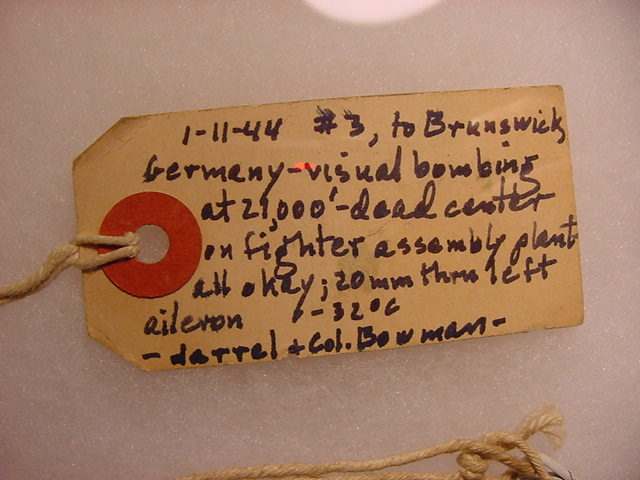 1-11-44 #3, to Brunswick,
Germany-visual bombing
at 21,000'-dead center
on fighter assembly plant
all okay; 20mm thru left
aileron -32°C
-darrel + Col. Bowman-